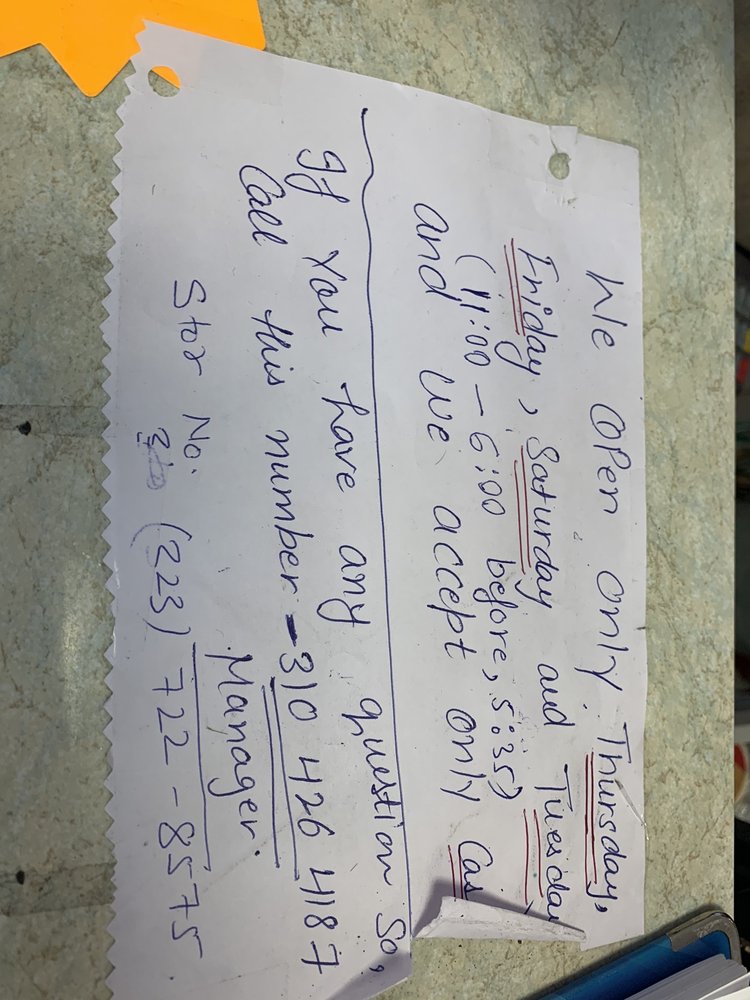 We open only Thursday,
Friday, Saturday and Tuesday
(11:00 - 6:00 before, 5:35)
and we accept only Cas
If You have any question so,
Call this number - 310 426 4187
Manager.
Stor No. (223) 722 - 8575.